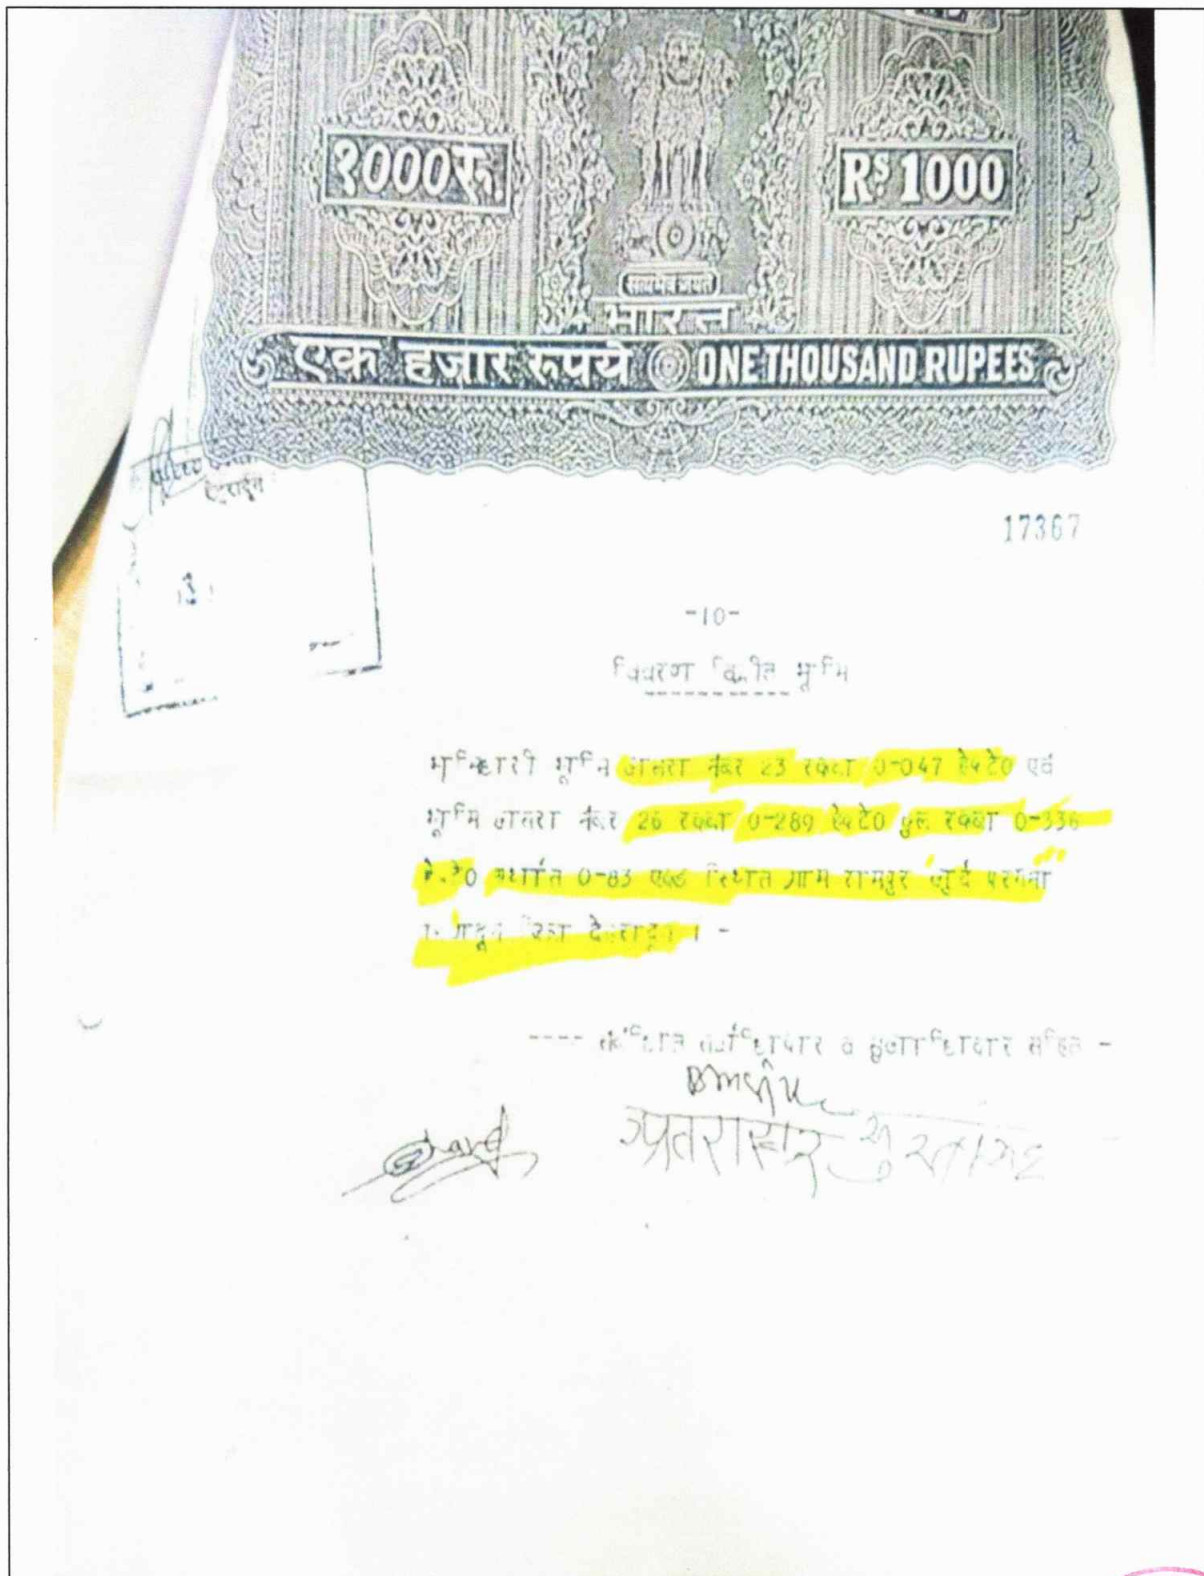 १000रु.
RS 1000
सत्यमेव जयते
भारत
एक हजार रुपये ONE THOUSAND RUPEES
देहरादून
17367
-10-
विवरण विक्रीत भूमि
भूमिधारी भूमि खसरा नंबर 23 रकबा 0-047 हेक्टे0 एवं
भूमि खसरा नंबर 26 रकबा 0-289 हेक्टे0 कुल रकबा 0-336
हे.टे0 अर्थात 0-83 एकड स्थित ग्राम रामपुर खुर्द परगना
जिला देहरादून । -
---- सर्वाधिकार व सुखाधिकार सहित -